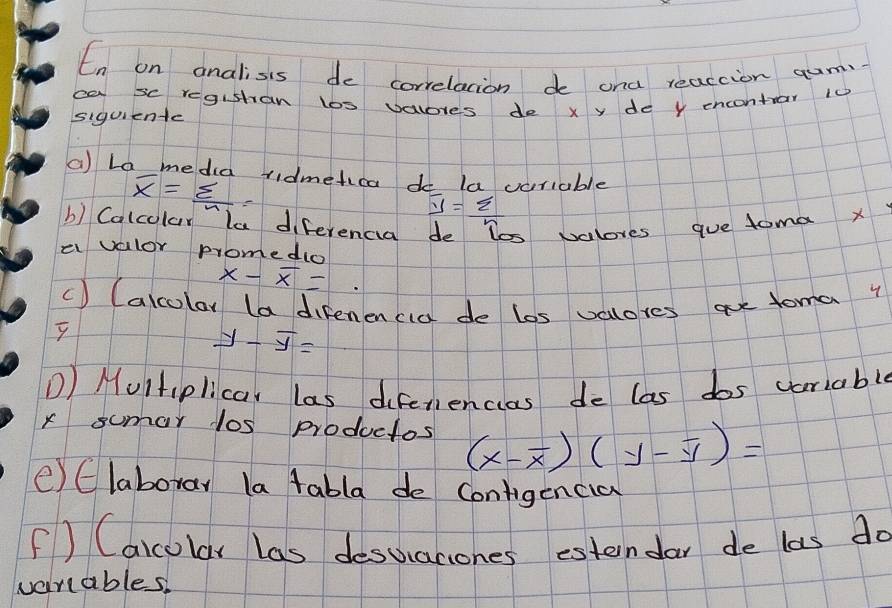 En un analisis de correlacion de una reaccion quimi-
ca se registran los valores de x y de y encontrar lo
siguiente
a) La media ridmetica de la variable
x̄ = Σ/n ȳ = Σ/n
b) Calcular la diferencia de los valores que toma x y
el valor promedio
x - x̄ = .
c) Calcular la difenencia de los valores que toma y
ȳ
y - ȳ =
D) Multiplicar las difenencias de las dos variable
y sumar los productos
(x - x̄) (y - ȳ) =
e) Elaborar la tabla de contigencia
f) Calcular las desviaciones estandar de las do
variables.